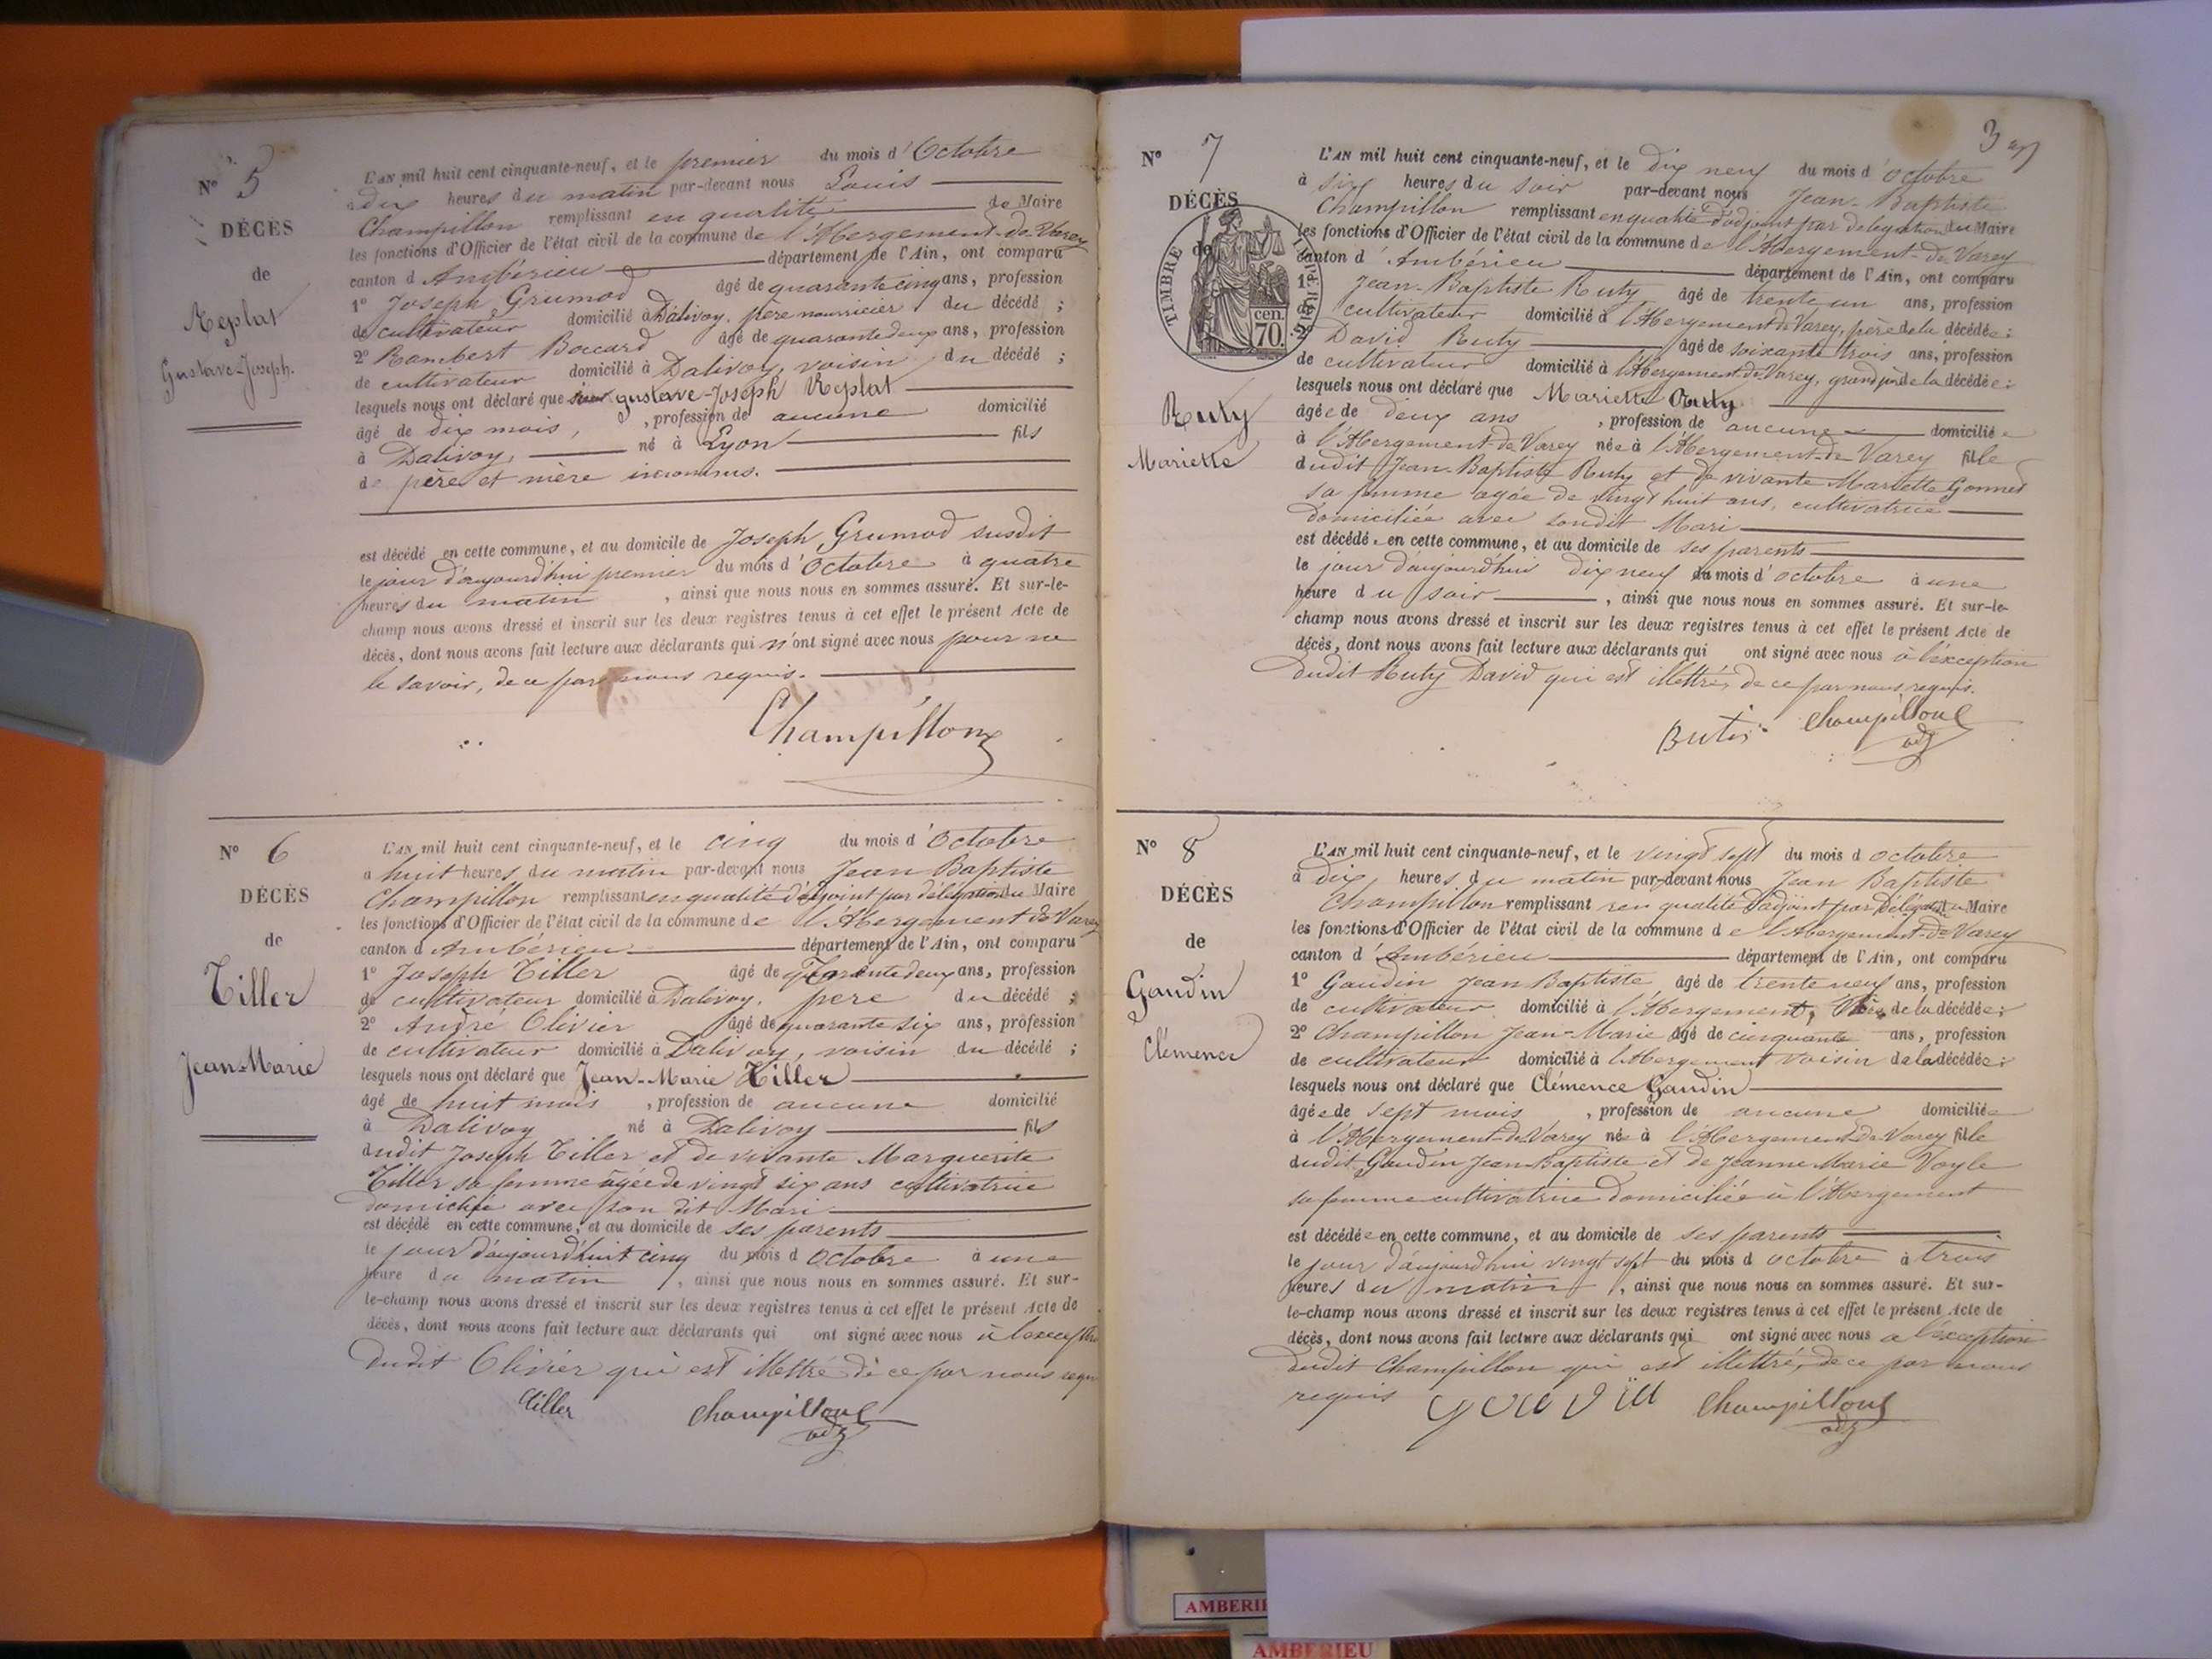 N° 5
DÉCÈS
de
Replat
Gustave-Joseph.
L'AN mil huit cent cinquante-neuf, et le premier du mois d'Octobre
à dix heures du matin par-devant nous Louis
Champillon remplissant en qualité de Maire
les fonctions d'Officier de l'état civil de la commune de l'Abergement-de-Varey
canton d'Ambérieu département de l'Ain, ont comparu
1° Joseph Grumod âgé de quarante cinq ans, profession
de cultivateur domicilié à Dalivoy, père nourricier du décédé ;
2° Rambert Boccard âgé de quarante deux ans, profession
de cultivateur domicilié à Dalivoy, voisin du décédé ;
lesquels nous ont déclaré que gustave-Joseph Replat
âgé de dix mois, , profession de aucune domicilié
à Dalivoy, né à Lyon fils
de père et mère inconnus.
est décédé en cette commune, et au domicile de Joseph Grumod susdit
le jour d'aujourd'hui premier du mois d'Octobre à quatre
heures du matin , ainsi que nous nous en sommes assuré. Et sur-le-
champ nous avons dressé et inscrit sur les deux registres tenus à cet effet le présent Acte de
décès, dont nous avons fait lecture aux déclarants qui n'ont signé avec nous pour ne
le savoir, de ce par nous requis.
Champillon
N° 6
DÉCÈS
de
Tiller
Jean-Marie
L'AN mil huit cent cinquante-neuf, et le cinq du mois d'Octobre
à huit heures du matin par-devant nous Jean Baptiste
Champillon remplissant en qualité d'adjoint par délégation du Maire
les fonctions d'Officier de l'état civil de la commune de l'Abergement de Varey
canton d'Ambérieu département de l'Ain, ont comparu
1° Joseph Tiller âgé de trente deux ans, profession
de cultivateur domicilié à Dalivoy, père du décédé ;
2° André Olivier âgé de quarante six ans, profession
de cultivateur domicilié à Dalivoy, voisin du décédé ;
lesquels nous ont déclaré que Jean-Marie Tiller
âgé de huit mois , profession de aucune domicilié
à Dalivoy né à Dalivoy fils
dudit Joseph Tiller et de vivante Marguerite
Tiller sa femme âgée de vingt six ans cultivatrice
domiciliée avec son dit Mari
est décédé en cette commune, et au domicile de ses parents
le jour d'aujourd'huit cinq du mois d'Octobre à une
heure du matin , ainsi que nous nous en sommes assuré. Et sur-
le-champ nous avons dressé et inscrit sur les deux registres tenus à cet effet le présent Acte de
décès, dont nous avons fait lecture aux déclarants qui ont signé avec nous à l'exception
dudit Olivier qui est illettré de ce par nous requis
tiller champillon
adj
3
N° 7
DÉCÈS
de
TIMBRE IMPÉRIAL
cen.
70.
Ruty
Mariette
L'AN mil huit cent cinquante-neuf, et le dix neuf du mois d'octobre
à six heures du soir par-devant nous Jean-Baptiste
Champillon remplissant en qualité d'adjoint par délégation du Maire
les fonctions d'Officier de l'état civil de la commune de l'Abergement-de-Varey
canton d'Ambérieu département de l'Ain, ont comparu
1° Jean-Baptiste Ruty âgé de trente un ans, profession
de cultivateur domicilié à l'Abergement de Varey, père de la décédée ;
2° David Ruty âgé de soixante trois ans, profession
de cultivateur domicilié à l'Abergement-de-Varey, grand père de la décédée ;
lesquels nous ont déclaré que Mariette Ruty
âgée de deux ans , profession de aucune domiciliée
à l'Abergement-de-Varey née à l'Abergement-de-Varey fille
dudit Jean-Baptiste Ruty et de vivante Mariette Gonnet
sa femme agée de vingt huit ans, cultivatrice
domiciliée avec sondit Mari
est décédée en cette commune, et au domicile de ses parents
le jour d'aujourd'hui dix neuf du mois d'octobre à une
heure du soir , ainsi que nous nous en sommes assuré. Et sur-le-
champ nous avons dressé et inscrit sur les deux registres tenus à cet effet le présent Acte de
décès, dont nous avons fait lecture aux déclarants qui ont signé avec nous à l'exception
dudit Ruty David qui est illettré, de ce par nous requis.
champillon
adj
N° 8
DÉCÈS
de
Gaudin
Clémence
L'AN mil huit cent cinquante-neuf, et le vingt sept du mois d octobre
à dix heures du matin par-devant nous Jean Baptiste
Champillon remplissant en qualité d'adjoint par délégation du Maire
les fonctions d'Officier de l'état civil de la commune de l'Abergement-de-Varey
canton d'Ambérieu département de l'Ain, ont comparu
1° Gaudin Jean Baptiste âgé de trente neuf ans, profession
de cultivateur domicilié à l'Abergement, Père de la décédée ;
2° Champillon Jean-Marie âgé de cinquante ans, profession
de cultivateur domicilié à l'Abergement voisin de la décédée ;
lesquels nous ont déclaré que Clémence Gaudin
âgée de sept mois , profession de aucune domiciliée
à l'Abergement-de-Varey née à l'Abergement de Varey fille
dudit Gaudin Jean Baptiste et de Jeanne Marie Voyle
sa femme cultivatrice domiciliée à l'Abergement
est décédée en cette commune, et au domicile de ses parents
le jour d'aujourdhui vingt sept du mois d octobre à trois
heures du matin , ainsi que nous nous en sommes assuré. Et sur-
le-champ nous avons dressé et inscrit sur les deux registres tenus à cet effet le présent Acte de
décès, dont nous avons fait lecture aux déclarants qui ont signé avec nous a l'exception
dudit Champillon qui est illettré, de ce par nous
requis gaudin champillon
adj
AMBERIE
AMBERIEU